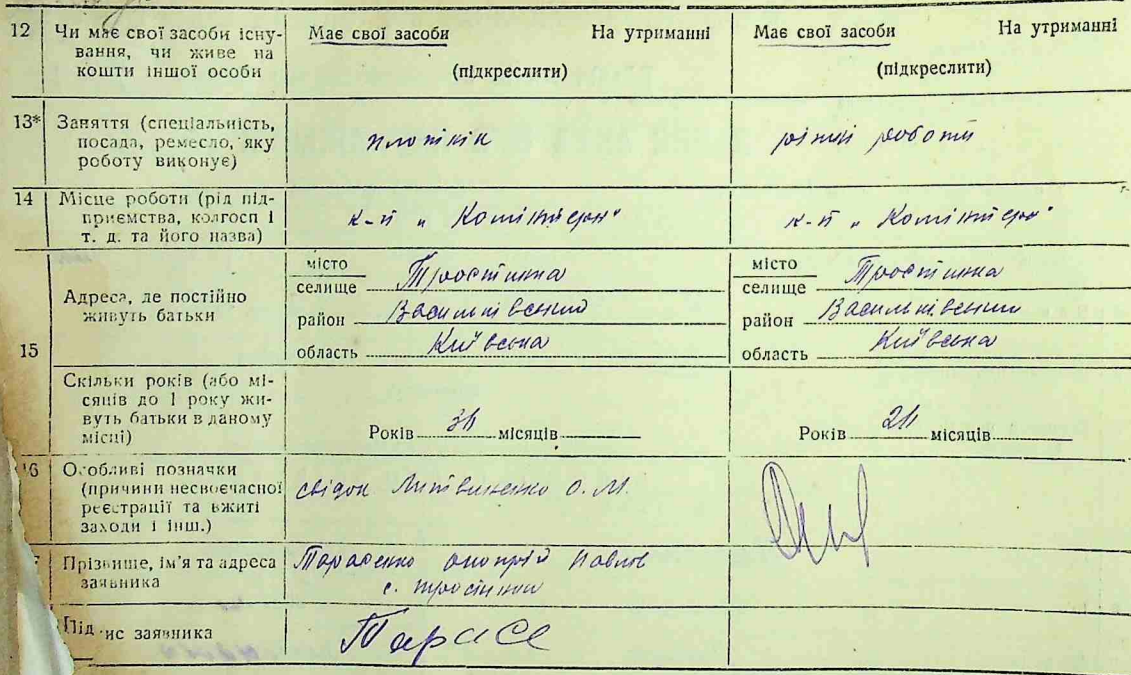 12 Чи має свої засоби існу-
вання, чи живе на
кошти іншої особи
Має свої засоби На утриманні
(підкреслити)
Має свої засоби На утриманні
(підкреслити)
13* Заняття (спеціальність,
посада, ремесло, яку
роботу виконує)
плотнік
різні роботи
14 Місце роботи (рід під-
приємства, колгосп і
т. д. та його назва)
к-п „Комінтерн"
к-п „Комінтерн"
15
Адреса, де постійно
живуть батьки
місто
селище Тростинка
район Васильківський
область Київська
місто
селище Тростинка
район Васильківський
область Київська
Скільки років (або мі-
сяців до 1 року жи-
вуть батьки в даному
місці)
Років місяців
Років місяців
16 Особливі позначки
(причини несвоєчасної
реєстрації та вжиті
заходи і інш.)
свідок Литвиненко О. М.
Прізвище, ім'я та адреса
заявника
Тарасенко Онопрій Павлов
с. Тростинка
Підпис заявника
Тарасе